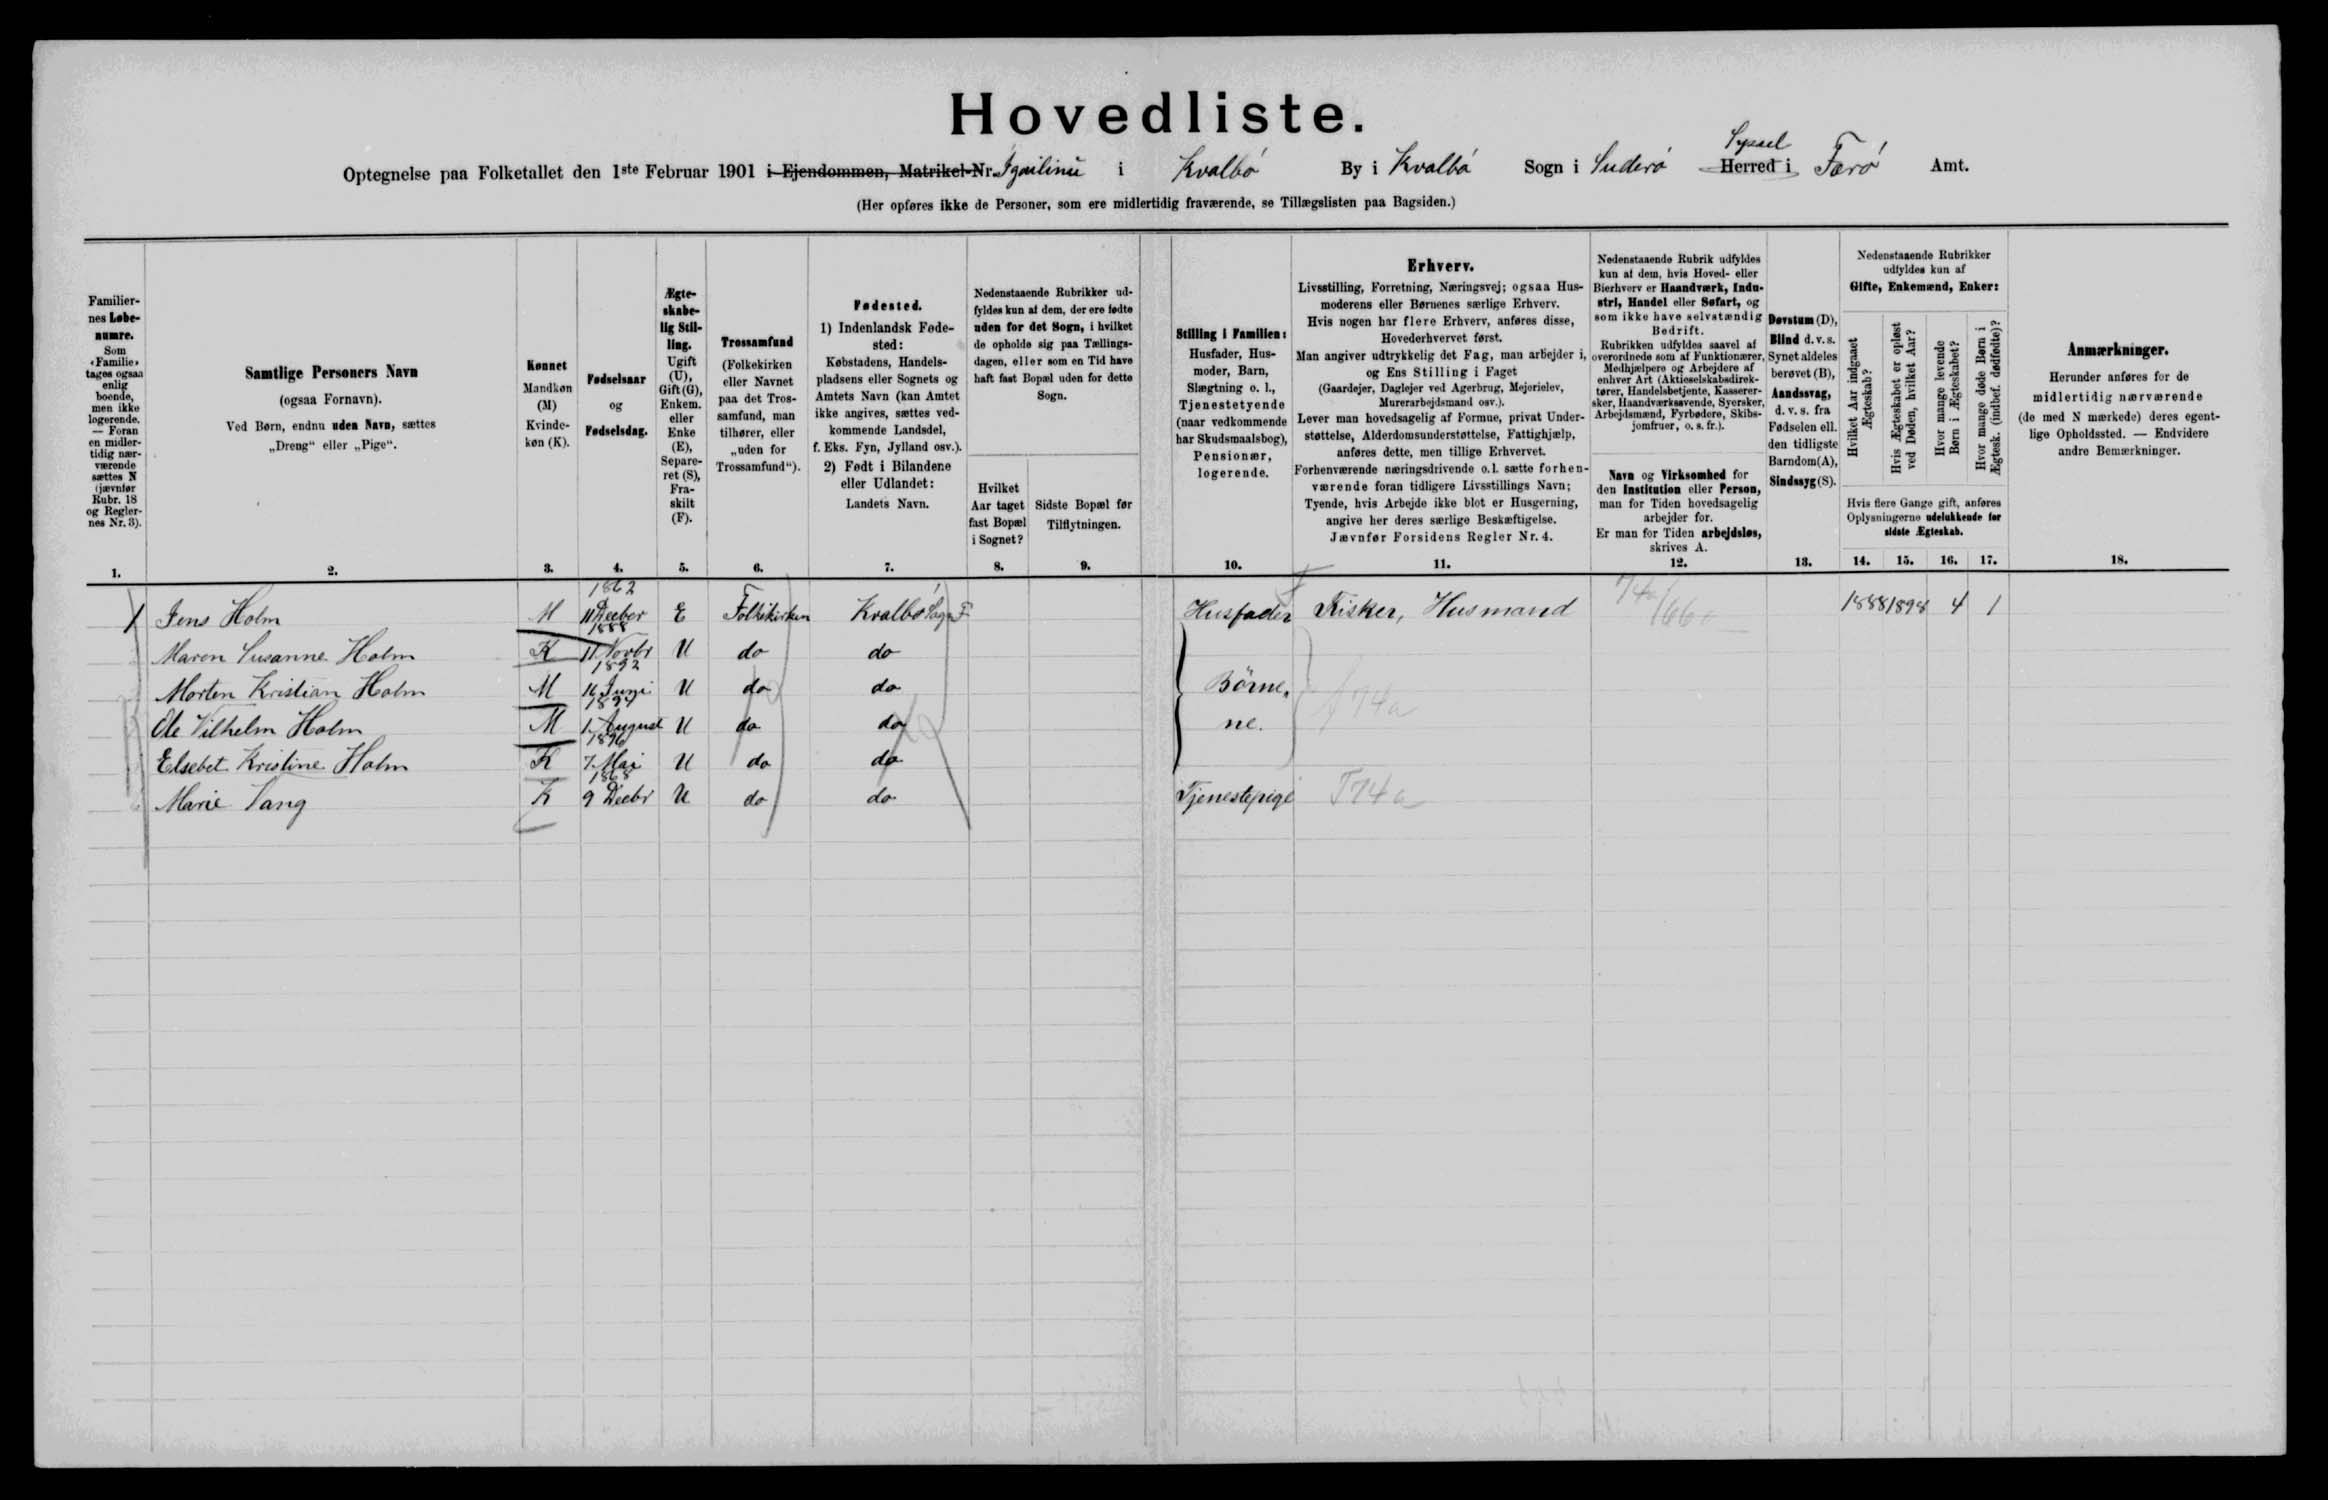 Hovedliste.
Optegnelse paa Folketallet den 1ste Februar 1901 i Ejendommen, Matrikel-Nr. i Kvalbó By i Kvalbó Sogn i Suderó Herred i Syssel Færó Amt.
(Her opføres ikke de Personer, som ere midlertidig fraværende, se Tillægslisten paa Bagsiden.)
Familier-
nes Løbe-
numre.
Som
«Familie»
tages ogsaa
enlig
boende,
men ikke
logerende.
— Foran
en midler-
tidig nær-
værende
sættes N
(jævnfør
Rubr. 18
og Regler-
nes Nr. 3).
1.
Samtlige Personers Navn
(ogsaa Fornavn).
Ved Børn, endnu uden Navn, sættes
„Dreng“ eller „Pige“.
2.
Kønnet
Mandkøn
(M)
Kvinde-
køn (K).
3.
Fødselsaar
og
Fødselsdag.
4.
Ægte-
skabe-
lig Stil-
ling.
Ugift
(U),
Gift (G),
Enkem.
eller
Enke
(E),
Separe-
ret (S),
Fra-
skilt
(F).
5.
Trossamfund
(Folkekirken
eller Navnet
paa det Tros-
samfund, man
tilhører, eller
„uden for
Trossamfund“).
6.
Fødested.
1) Indenlandsk Føde-
sted:
Købstadens, Handels-
pladsens eller Sognets og
Amtets Navn (kan Amtet
ikke angives, sættes ved-
kommende Landsdel,
f. Eks. Fyn, Jylland osv.).
2) Født i Bilandene
eller Udlandet:
Landets Navn.
7.
Nedenstaaende Rubrikker ud-
fyldes kun af dem, der ere fødte
uden for det Sogn, i hvilket
de opholde sig paa Tællings-
dagen, eller som en Tid have
haft fast Bopæl uden for dette
Sogn.
Hvilket
Aar taget
fast Bopæl
i Sognet?
8.
Sidste Bopæl før
Tilflytningen.
9.
Stilling i Familien:
Husfader, Hus-
moder, Barn,
Slægtning o. l.,
Tjenestetyende
(naar vedkommende
har Skudsmaalsbog),
Pensionær,
logerende.
10.
Erhverv.
Livsstilling, Forretning, Næringsvej; ogsaa Hus-
moderens eller Børnenes særlige Erhverv.
Hvis nogen har flere Erhverv, anføres disse,
Hovederhvervet først.
Man angiver udtrykkelig det Fag, man arbejder i,
og Ens Stilling i Faget
(Gaardejer, Daglejer ved Agerbrug, Mejerielev,
Murerarbejdsmand osv.).
Lever man hovedsagelig af Formue, privat Under-
støttelse, Alderdomsunderstøttelse, Fattighjælp,
anføres dette, men tillige Erhvervet.
Forhenværende næringsdrivende o. l. sætte forhen-
værende foran tidligere Livsstillings Navn;
Tyende, hvis Arbejde ikke blot er Husgerning,
angive her deres særlige Beskæftigelse.
Jævnfør Forsidens Regler Nr. 4.
11.
Nedenstaaende Rubrik udfyldes
kun af dem, hvis Hoved- eller
Bierhverv er Haandværk, Indu-
stri, Handel eller Søfart, og
som ikke have selvstændig
Bedrift.
Rubrikken udfyldes saavel af
overordnede som af Funktionærer,
Medhjælpere og Arbejdere af
enhver Art (Aktieselskabsdirek-
tører, Handelsbetjente, Kasserer-
sker, Haandværkssvende, Syersker,
Arbejdsmænd, Fyrbødere, Skibs-
jomfruer, o. s. fr.).
Navn og Virksomhed for
den Institution eller Person,
man for Tiden hovedsagelig
arbejder for.
Er man for Tiden arbejdsløs,
skrives A.
12.
Døvstum (D),
Blind d. v. s.
Synet aldeles
berøvet (B),
Aandssvag,
d. v. s. fra
Fødselen ell.
den tidligste
Barndom (A),
Sindssyg (S).
13.
Nedenstaaende Rubrikker
udfyldes kun af
Gifte, Enkemænd, Enker:
Hvilket Aar indgaaet
Ægteskab?
Hvis Ægteskabet er opløst
ved Døden, hvilket Aar?
Hvor mange levende
Børn i Ægteskabet?
Hvor mange døde Børn i
Ægtesk. (indbef. dødfødte)?
Hvis flere Gange gift, anføres
Oplysningerne udelukkende for
sidste Ægteskab.
14. 15. 16. 17.
Anmærkninger.
Herunder anføres for de
midlertidig nærværende
(de med N mærkede) deres egent-
lige Opholdssted. — Endvidere
andre Bemærkninger.
18.
1 Jens Holm M 1862 11 Decber E Folkekirken Kvalbó Sogn F Husfader Fisker, Husmand 74a/66 1888 1898 4 1
Maren Susanne Holm K 1888 11 Novbr U do do
Morten Kristian Holm M 1892 16 Juni U do do Börne, 74a
Ole Vilhelm Holm M 1894 1 August U do do ne.
Elsebet Kristine Holm K 1896 7 Mai U do do
Marie Vang K 1868 9 Decbr U do do Tjenestepige F74a